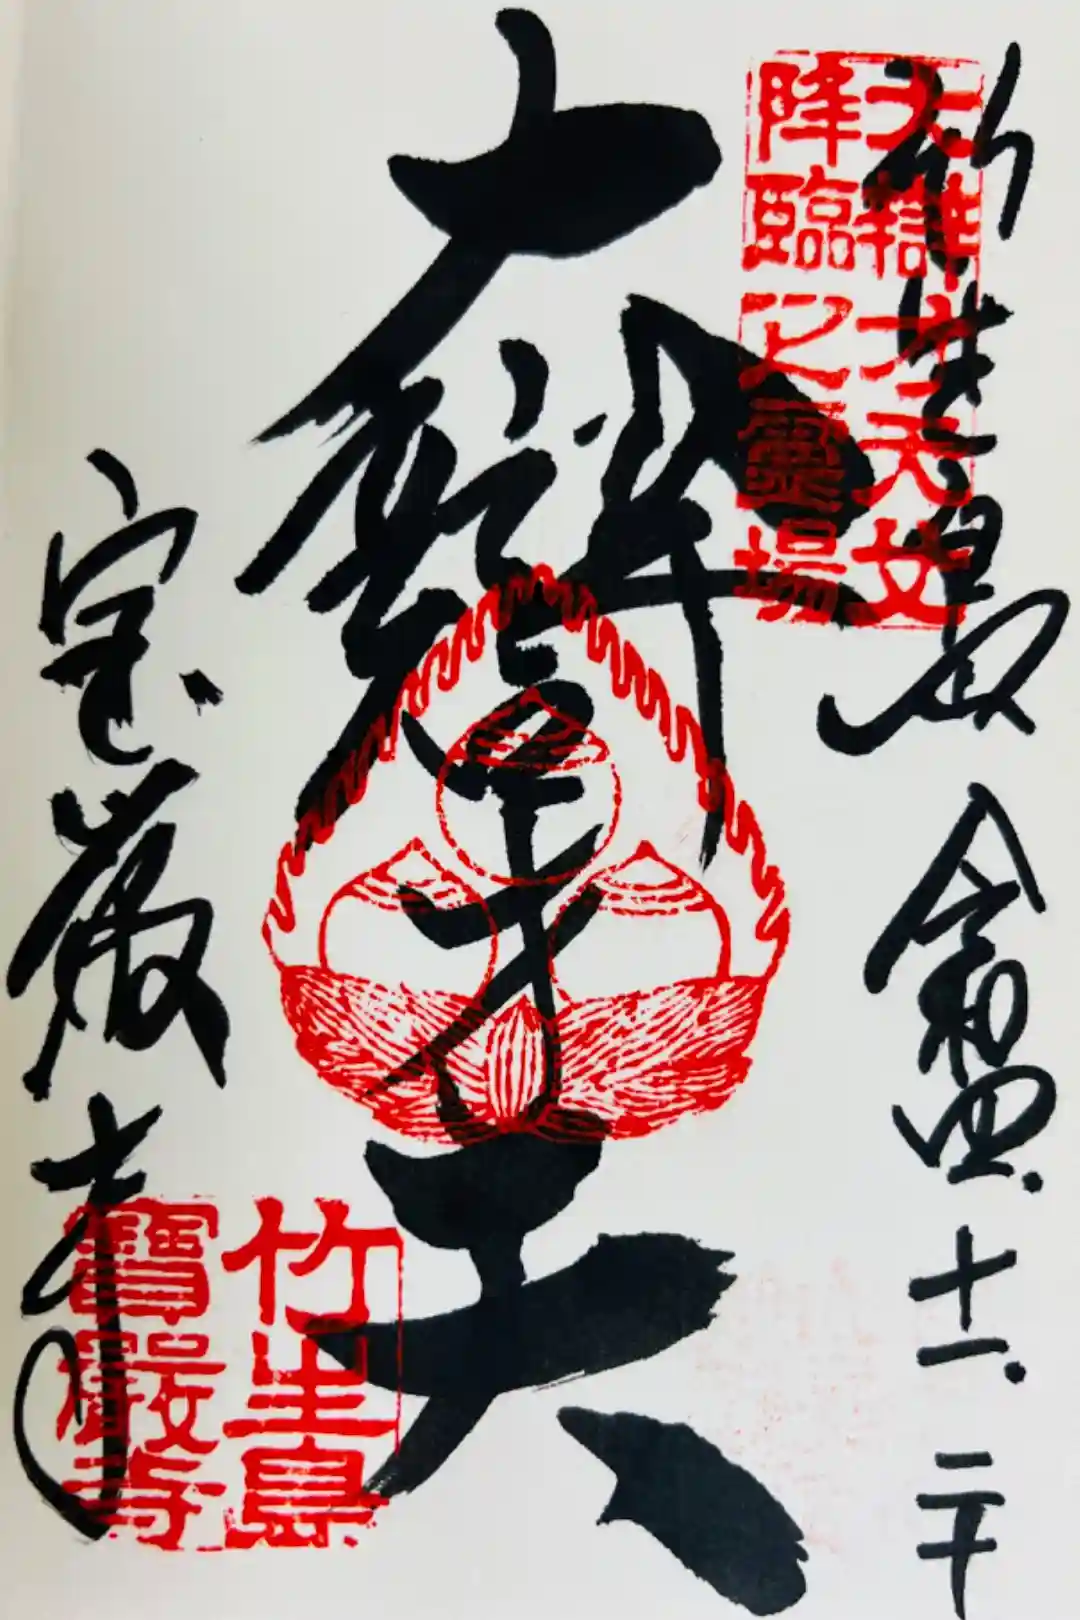 大辯才天女
降臨之霊場
竹生島 令和四.十一.二十
大辯才天
宝厳寺
竹生島
寶嚴寺